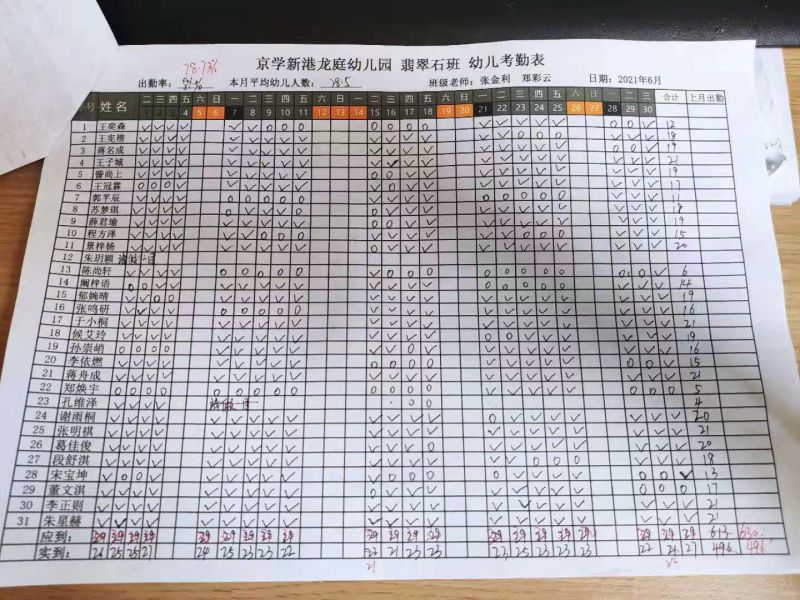 京学新港龙庭幼儿园 翡翠石班 幼儿考勤表
78.73%
出勤率: 81% 本月平均幼儿人数: 28.5 班级老师: 张金利 郑彩云 日期: 2021年6月
号 姓名 二 三 四 五 六 日 一 二 三 四 五 六 日 一 二 三 四 五 六 日 一 二 三 四 五 六 日 一 二 三 合计 上月出勤
1 2 3 4 5 6 7 8 9 10 11 12 13 14 15 16 17 18 19 20 21 22 23 24 25 26 27 28 29 30
1 王奕森 12
2 王宪楷 18
3 蒋名成 19
4 王子城 21
5 曾尚上 19
6 王冠霖 17
7 郭芊辰 11
8 苏梦琪 18
9 薛君瑜 19
10 程方泽 15
11 景梓杨 20
12 朱玥颖 请假一月
13 陈尚轩 6
14 阚梓语 14
15 郁婉晴 19
16 张鸣研 16
17 于小桐 21
18 候艾玲 19
19 孙崇峭 16
20 李依燃 15
21 蒋舟成 21
22 郑焕宇 5
23 孔维泽 请假 月 4
24 谢雨桐 20
25 张明祺 21
26 葛佳俊 20
27 段舒淇 18
28 宋宝坤 13
29 董文淇 17
30 李正则 21
31 朱星赫 21
应到: 29 29 29 29 29 29 29 29 29 29 29 29 29 29 29 29 29 29 29 29 29 613 630
实到: 26 25 25 21 24 25 23 23 22 22 21 23 23 23 25 23 23 23 22 21 27 496 496
21 22